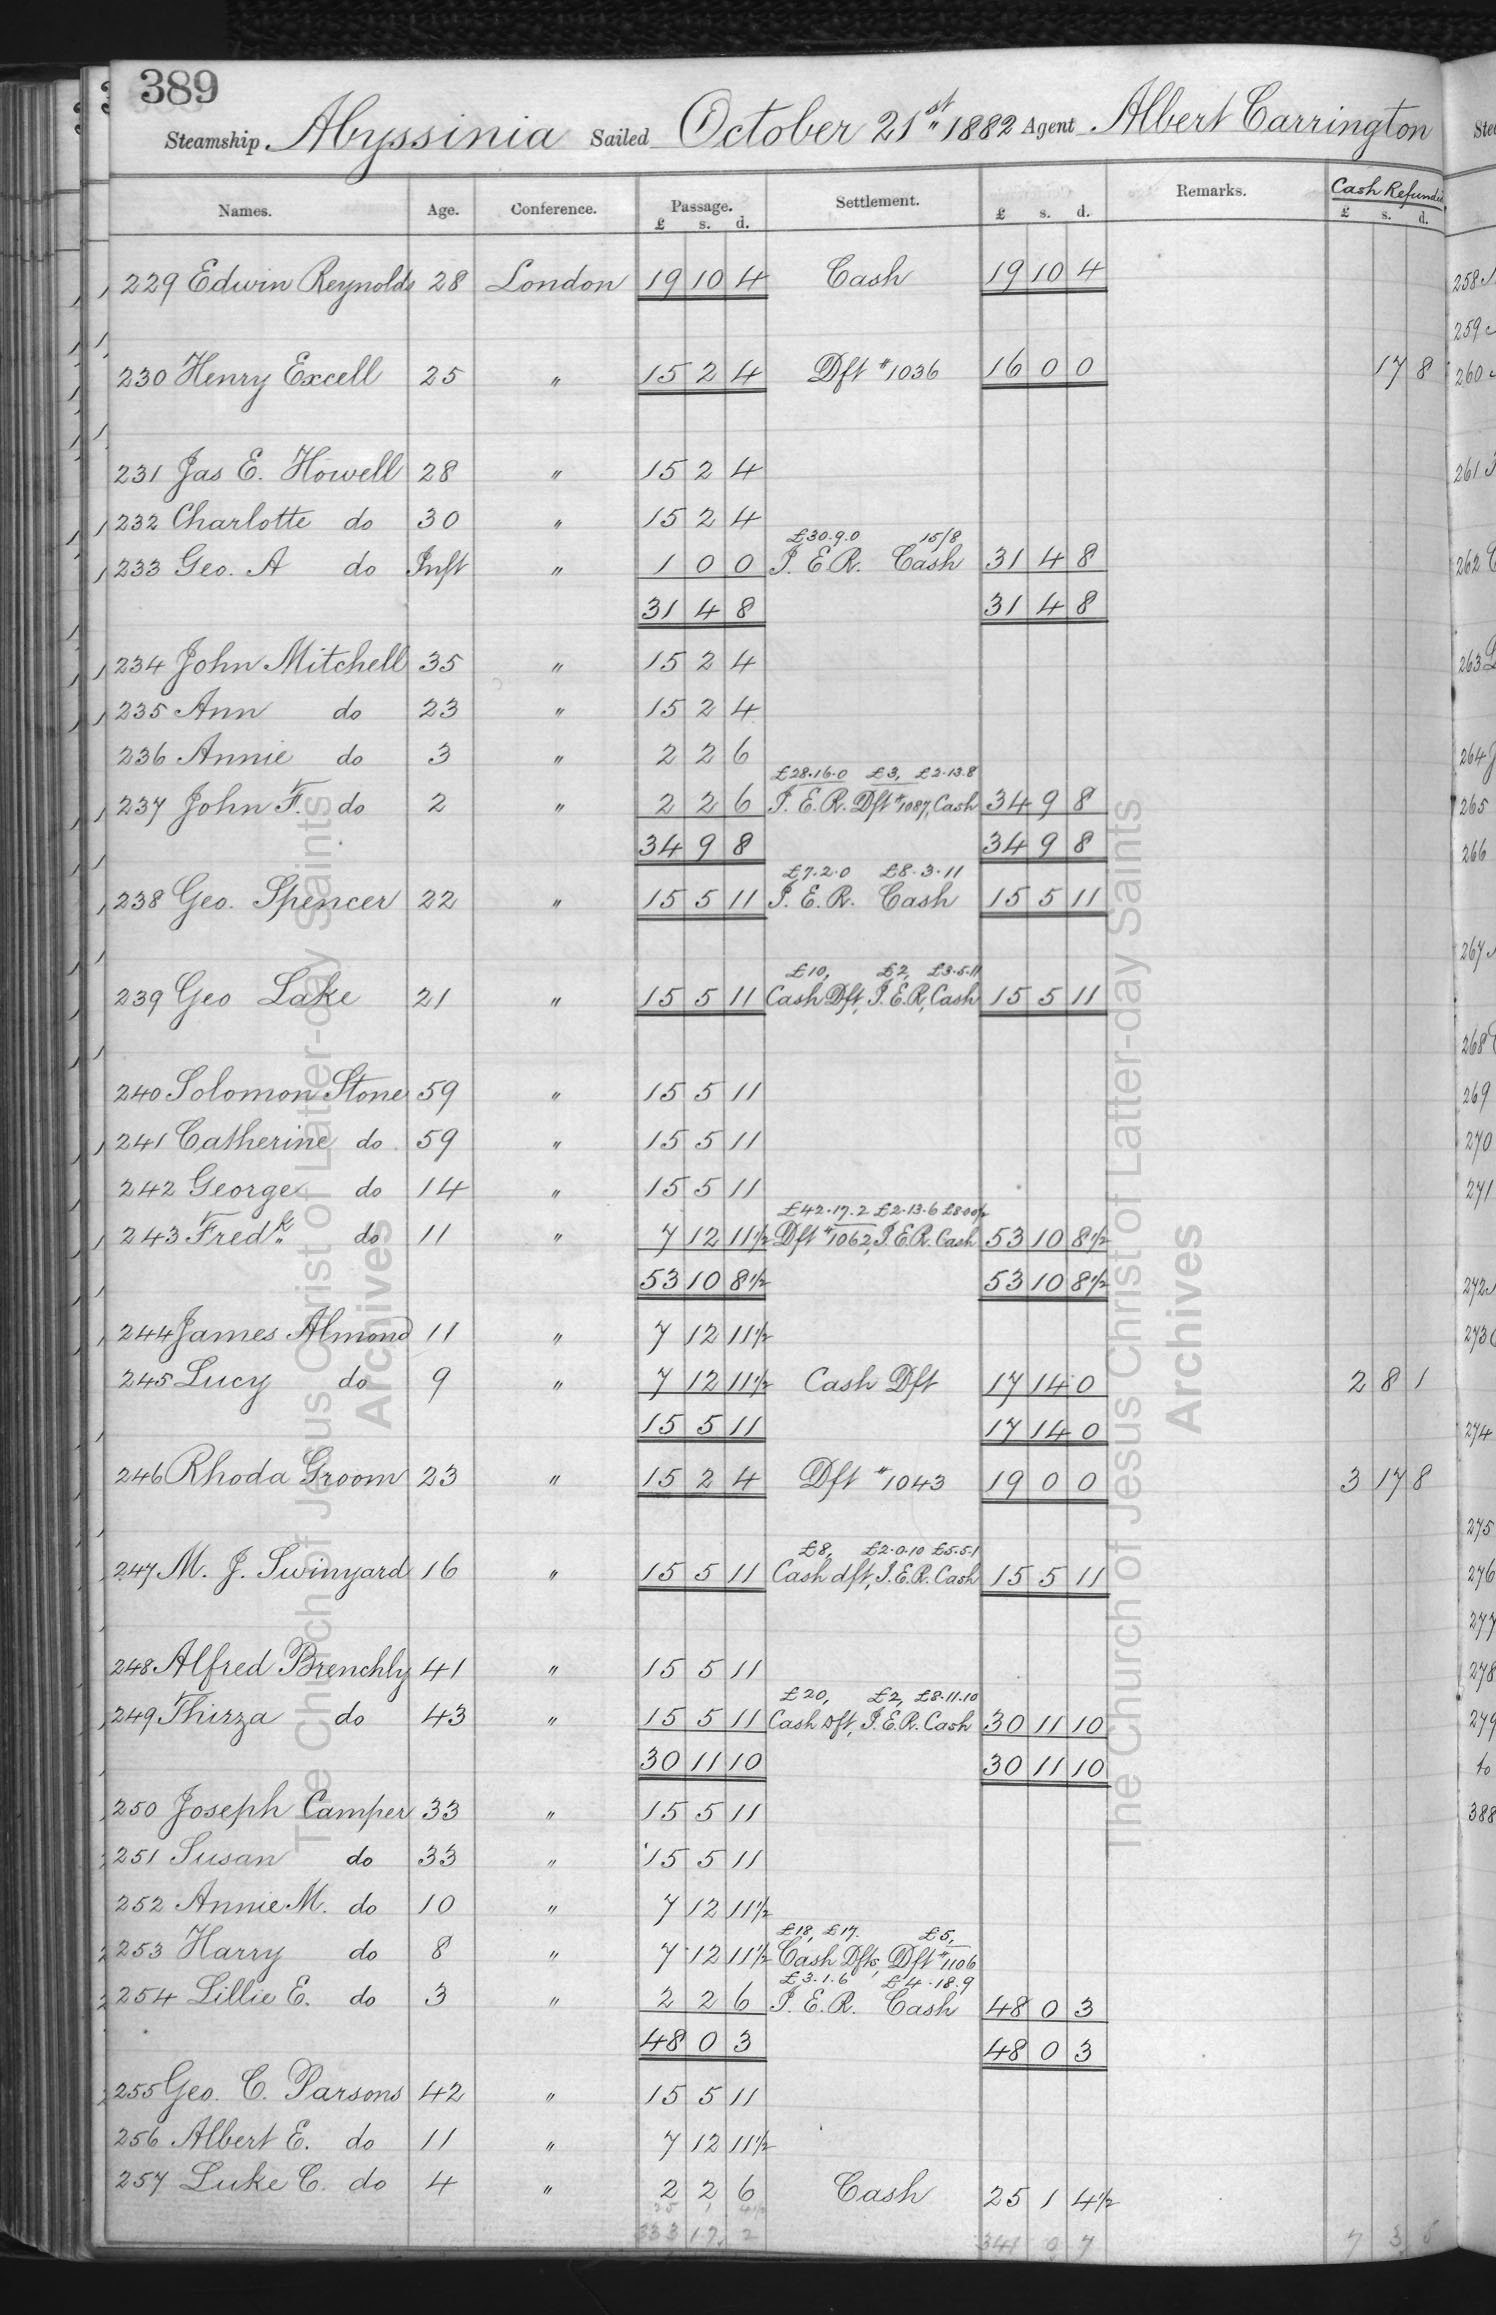 389
Steamship Abyssinia Sailed October 21st 1882 Agent Albert Carrington
Names. Age. Conference. Passage. Settlement. Remarks. Cash Refunded
£ s. d. £ s. d. £ s. d.
229 Edwin Reynolds 28 London 19 10 4 Cash 19 10 4
230 Henry Excell 25 " 15 2 4 Dft #1036 16 0 0 17 8
231 Jas E. Howell 28 " 15 2 4
232 Charlotte do 30 " 15 2 4
£30.9.0 15/8
233 Geo. A do Inft " 1 0 0 I. E. R. Cash 31 4 8
31 4 8 31 4 8
234 John Mitchell 35 " 15 2 4
235 Ann do 23 " 15 2 4
236 Annie do 3 " 2 2 6
£28.16.0 £3, £2.13.8
237 John F. do 2 " 2 2 6 I. E. R. Dft #1087, Cash 34 9 8
34 9 8 34 9 8
£7.2.0 £8.3.11
238 Geo. Spencer 22 " 15 5 11 I. E. R. Cash 15 5 11
£10, £2, £3.5.11
239 Geo Lake 21 " 15 5 11 Cash Dft, I. E. R, Cash 15 5 11
240 Solomon Stone 59 " 15 5 11
241 Catherine do 59 " 15 5 11
242 George do 14 " 15 5 11
£42.17.2 £2.13.6 £8.0.0½
243 Fredk. do 11 " 7 12 11½ Dft #1062, I.E.R. Cash 53 10 8½
53 10 8½ 53 10 8½
244 James Almond 11 " 7 12 11½
245 Lucy do 9 " 7 12 11½ Cash Dft 17 14 0 2 8 1
15 5 11 17 14 0
246 Rhoda Groom 23 " 15 2 4 Dft #1043 19 0 0 3 17 8
£8, £2.0.10 £5.5.1
247 M. J. Swinyard 16 " 15 5 11 Cash dft, I.E.R. Cash 15 5 11
248 Alfred Brenchly 41 " 15 5 11
£20, £2, £8.11.10
249 Thirza do 43 " 15 5 11 Cash Dft, I.E.R. Cash 30 11 10
30 11 10 30 11 10
250 Joseph Camper 33 " 15 5 11
251 Susan do 33 " 15 5 11
252 Annie M. do 10 " 7 12 11½
£18, £17. £5,
253 Harry do 8 " 7 12 11½ Cash Dfts, Dft #1106
£3.1.6 £4.18.9
254 Lillie E. do 3 " 2 2 6 I. E. R. Cash 48 0 3
48 0 3 48 0 3
255 Geo. C. Parsons 42 " 15 5 11
256 Albert E. do 11 " 7 12 11½
257 Luke C. do 4 " 2 2 6 Cash 25 1 4½
25 1 4½
333 17 2 341 0 7 7 3 5
The Church of Jesus Christ of Latter-day Saints
Archives
The Church of Jesus Christ of Latter-day Saints
Archives
258
259
260
261
262
263
264
265
266
267
268
269
270
271
272
273
274
275
276
277
278
279
to
388